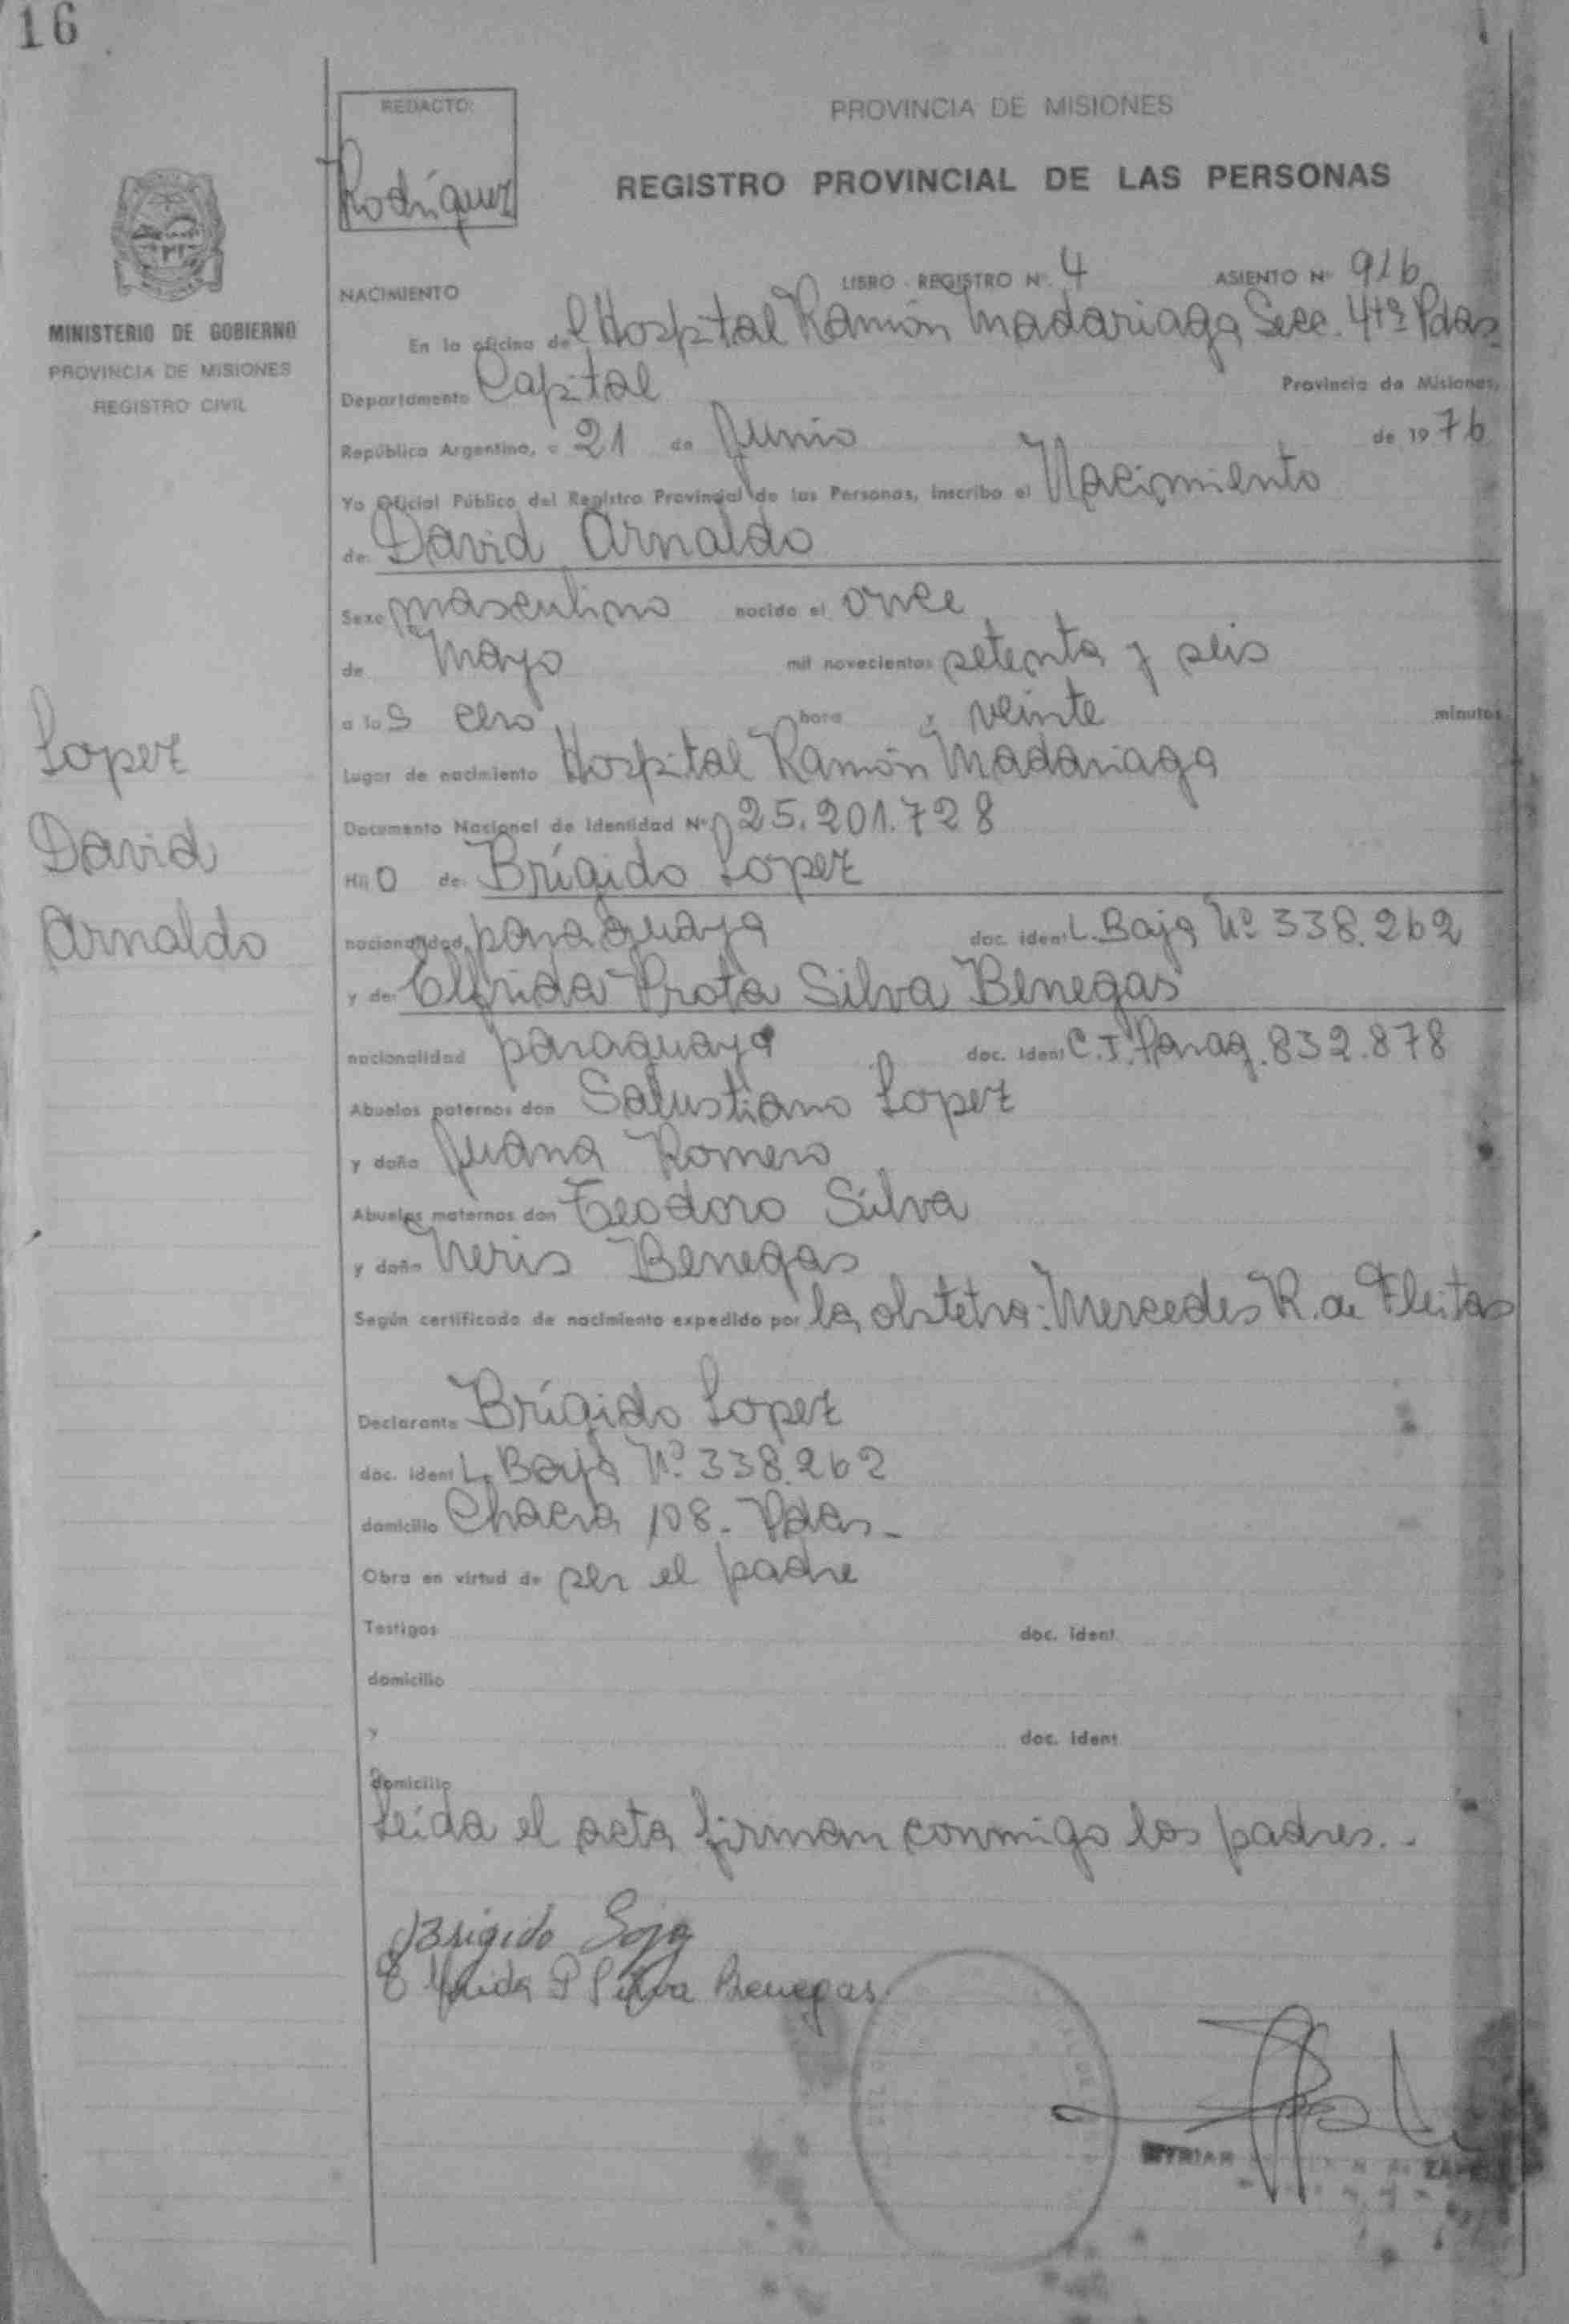 16
REDACTO:
Rodríguez
PROVINCIA DE MISIONES
REGISTRO PROVINCIAL DE LAS PERSONAS
MINISTERIO DE GOBIERNO
PROVINCIA DE MISIONES
REGISTRO CIVIL
NACIMIENTO
LIBRO - REGISTRO Nº 4 ASIENTO Nº 916
En la oficina del Hospital Ramón Madariaga Secc. 4ta Pdas
Departamento Capital Provincia de Misiones,
República Argentina, a 21 de Junio de 1976
Yo Oficial Público del Registro Provincial de las Personas, inscribo el Nacimiento
de David Arnaldo
Sexo masculino nacido el once
de Mayo mil novecientos setenta y seis
a las cero hora y veinte minutos
Lugar de nacimiento Hospital Ramón Madariaga
Documento Nacional de Identidad Nº 25.201.728
Hijo de Brígido Lopez
nacionalidad paraguaya doc. ident L. Baja Nº 338.262
y de Elfrida Prota Silva Benegas
nacionalidad paraguaya doc. ident C.I. Parag. 832.878
Abuelos paternos don Salustiano Lopez
y doña Juana Romero
Abuelos maternos don Teodoro Silva
y doña Neris Benegas
Según certificado de nacimiento expedido por la obstetra: Mercedes R. de Fleitas
Declarante Brígido Lopez
doc. ident L. Baja Nº 338.262
domicilio Chacra 108. Pdas.-
Obra en virtud de ser el padre
Testigos doc. ident.
domicilio
y doc. ident
domicilio
Leída el acta, firman conmigo los padres..
Lopez
David
Arnaldo
Brigido Lopez
Elfrida P Silva Benegas